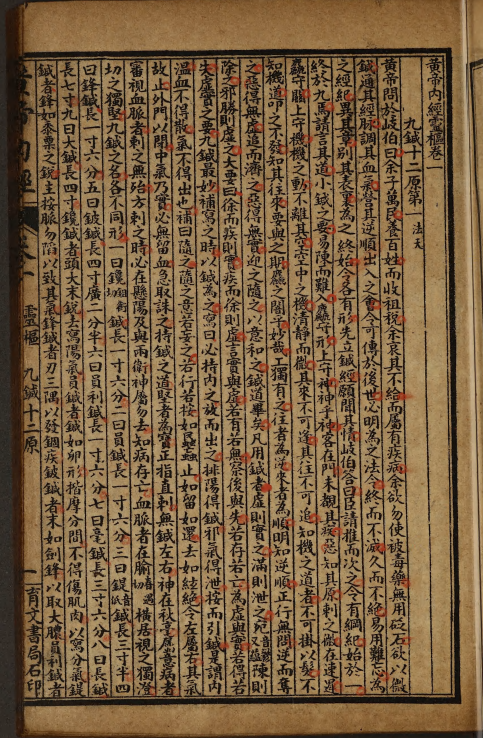 黃帝內經靈樞卷一
九鍼十二原第一 法天
黃帝問於岐伯曰余子萬民養百姓而收租稅余哀其不給而屬有疾病余欲勿使被毒藥無用砭石欲以微
鍼通其經脉調其血氣營其逆順出入之會令可傳於後世必明為之法令終而不滅久而不絕易用難忘為
之經紀異其章别其表裏為之終始令各有形先立鍼經願聞其情岐伯答曰臣請推而次之令有綱紀始於一
終於九焉請言其道小鍼之要易陳而難入麤守形上守神神乎神客在門未覩其疾惡知其原刺之微在速遲
麤守關上守機機之動不離其空空中之機清靜而微其來不可逢其往不可追知機之道者不可掛以髮不
知機道叩之不發知其往來要與之期麤之闇乎妙哉工獨有之往者為逆來者為順明知逆順正行無問逆而奪
之惡得無虛追而濟之惡得無實迎之隨之以意和之鍼道畢矣凡用鍼者虛則實之滿則泄之宛陳則
除之邪勝則虛之大要曰徐而疾則實疾而徐則虛言實與虛若有若無察後與先若存若亡為虛與實若得若
失虛實之要九鍼最妙補寫之時以鍼為之寫曰必持內之放而出之排陽得鍼邪氣得泄按而引鍼是謂內
溫血不得散氣不得出也補曰隨之隨之意若妄之若行若按如蚊虻止如留如還去如絃絕令左屬右其氣
故止外門以閉中氣乃實必無留血急取誅之持鍼之道堅者為寶正指直刺無鍼左右神在秋毫屬意病者
審視血脈者刺之無殆方刺之時必在懸陽及與兩衛神屬勿去知病存亡血脈者在腧橫居視之獨澄
切之獨堅九鍼之名各不同形一曰鑱鍼長一寸六分二曰員鍼長一寸六分三曰鍉鍼長三寸半四
曰鋒鍼長一寸六分五曰鈹鍼長四寸廣二分半六曰員利鍼長一寸六分七曰毫鍼長三寸六分八曰長鍼
長七寸九曰大鍼長四寸鑱鍼者頭大末銳去寫陽氣員鍼者鍼如卵形揩摩分間不得傷肌肉以寫分氣鍉
鍼者鋒如黍粟之銳主按脉勿陷以致其氣鋒鍼者刃三隅以發錮疾鈹鍼者末如劍鋒以取大膿員利鍼者
靈樞 九鍼十二原 一 育文書局石印